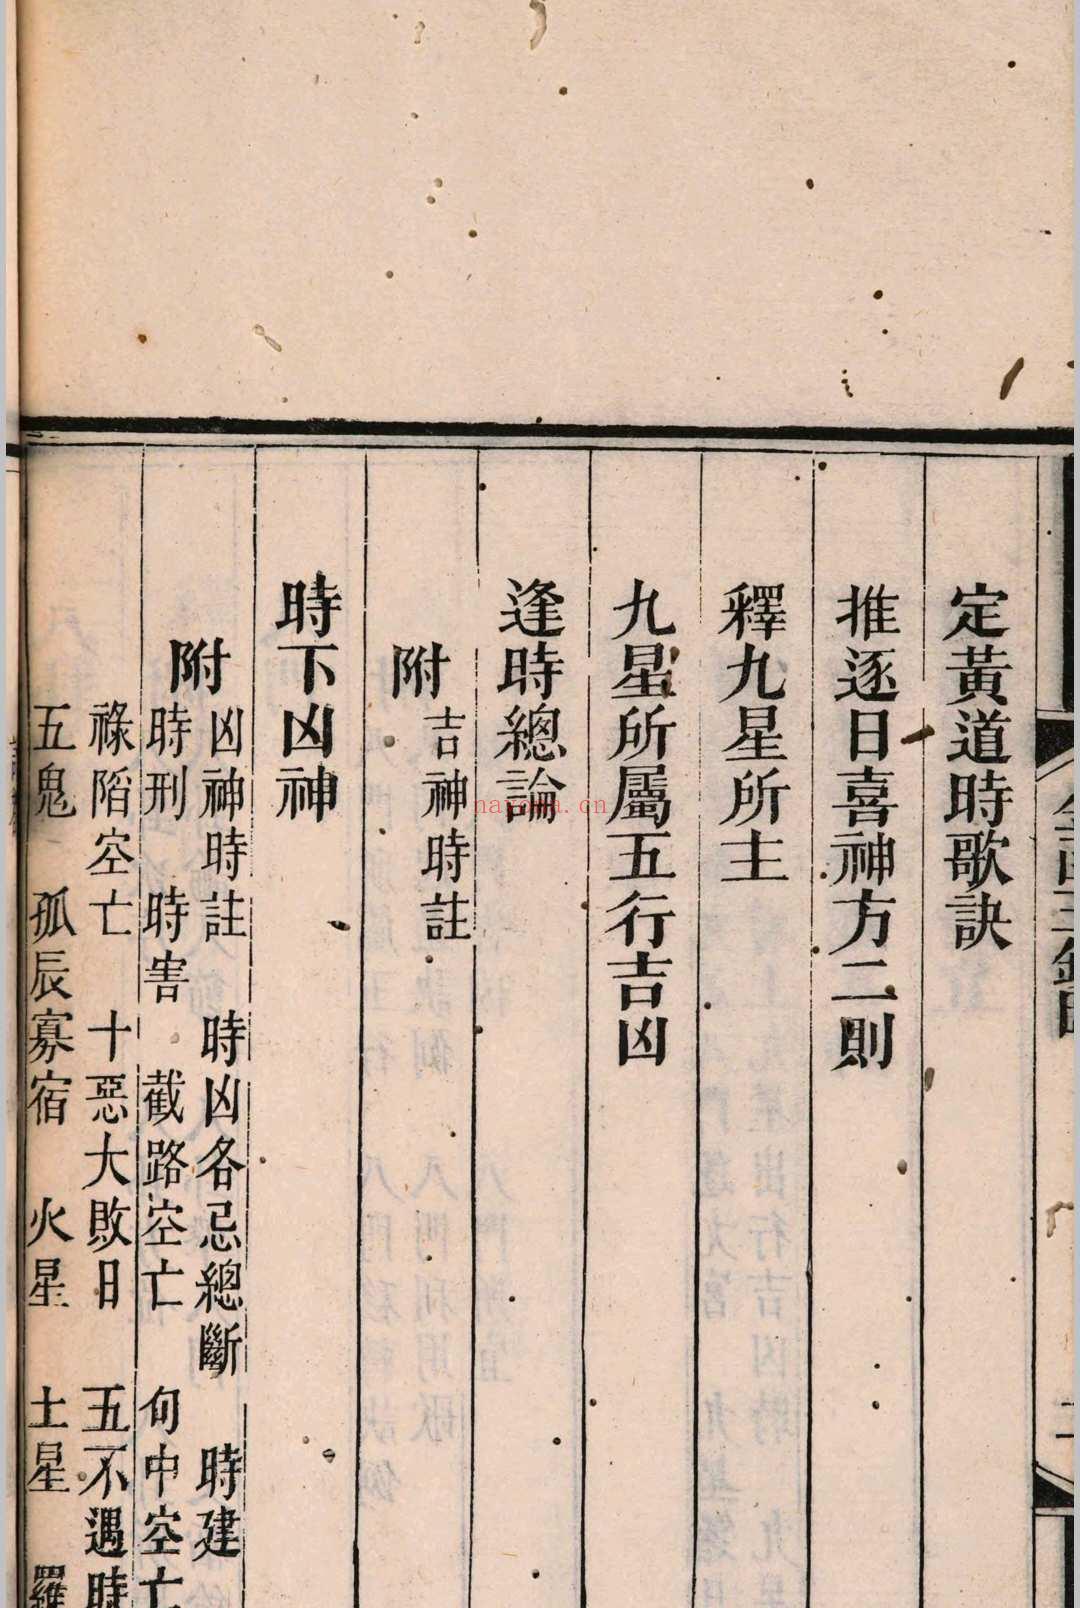 定黃道時歌訣
推逐日喜神方二則
釋九星所主
九星所屬五行吉凶
逢時總論
附 吉神時註
時下凶神
附 凶神時註 時凶各忌總斷 時建
時刑 時害 截路空亡 旬中空亡
祿陷空亡 十惡大敗日 五不遇時
五鬼 孤辰寡宿 火星 土星 羅
nayona.cn